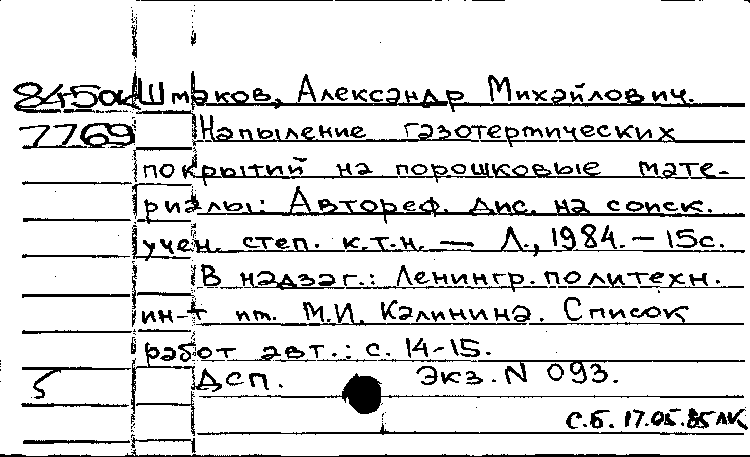 845ок Шмаков, Александр Михайлович.
7769 Напыление газотермических
покрытий на порошковые мате-
риалы: Автореф. дис. на соиск.
учен. степ. к.т.н. — Л., 1984. — 15с.
В надзаг.: Ленингр. политехн.
ин-т им. М.И. Калинина. Список
работ авт.: с. 14-15.
5 ДСП. Экз. N 093.
С.Б. 17.05.85 ЛК